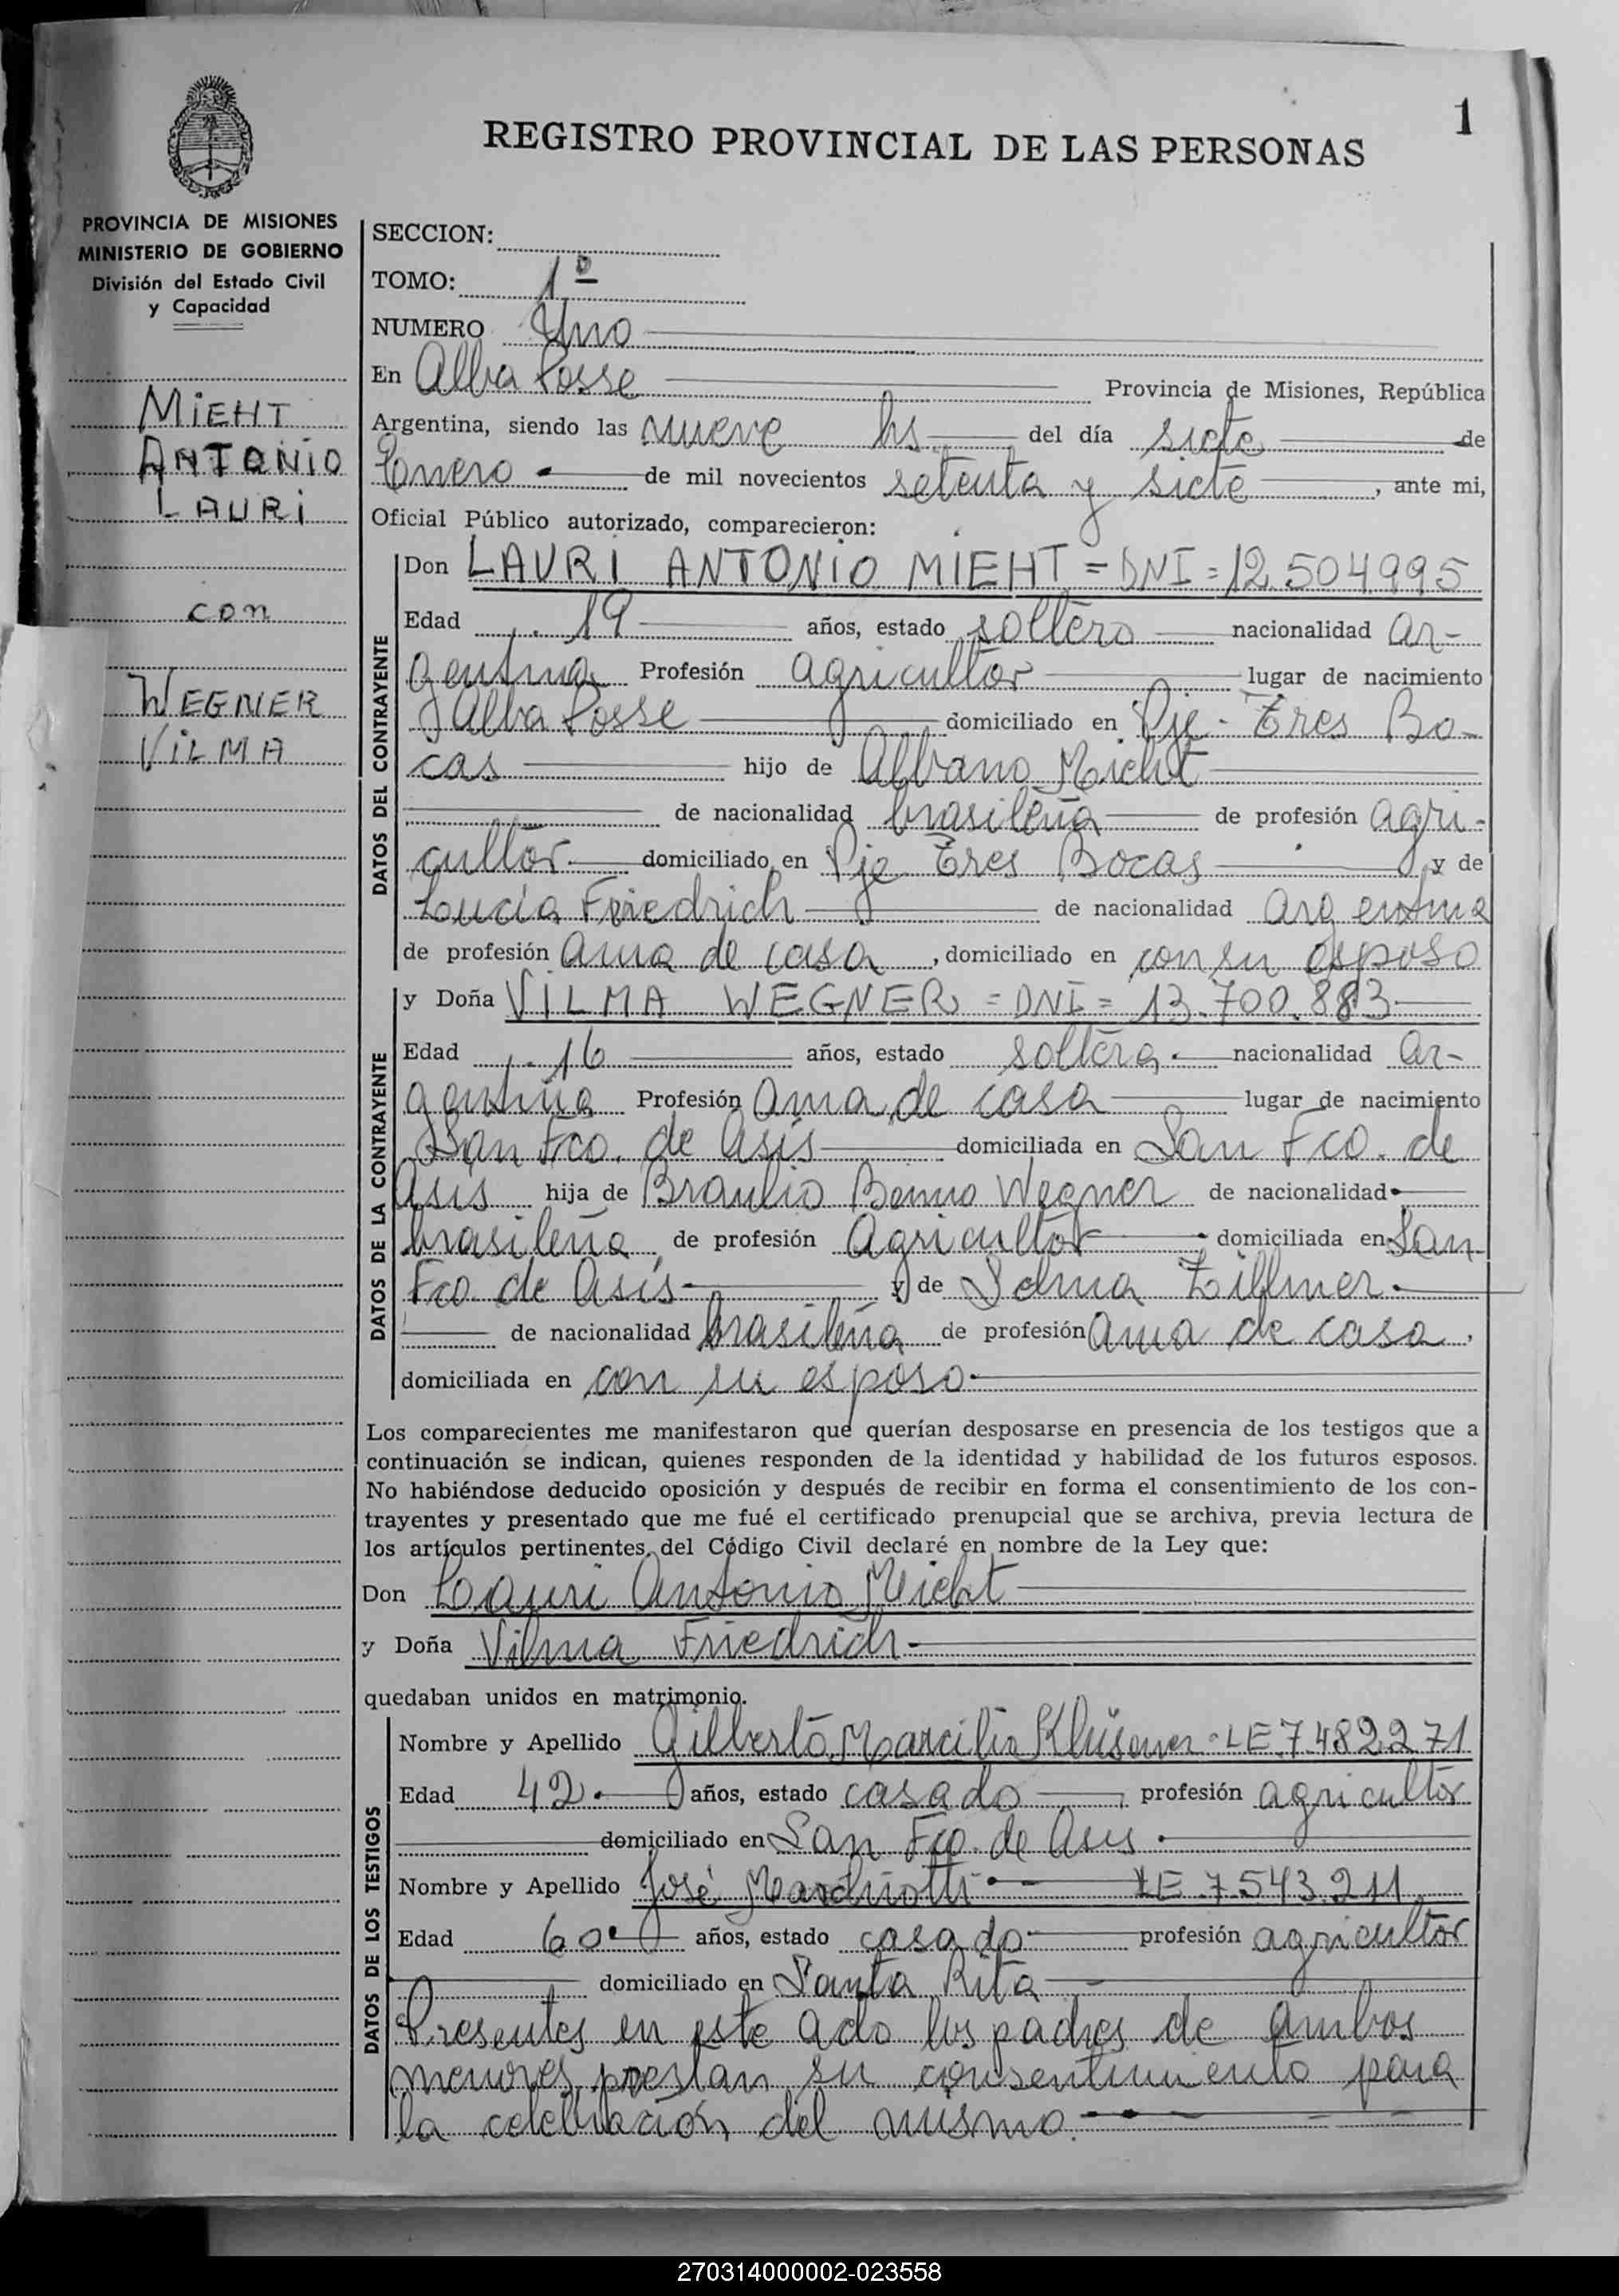 1
REGISTRO PROVINCIAL DE LAS PERSONAS
PROVINCIA DE MISIONES
MINISTERIO DE GOBIERNO
División del Estado Civil
y Capacidad
MIEHT
ANTONIO
LAURI
con
WEGNER
VILMA
SECCION:
TOMO: 1º
NUMERO Uno
En Alba Posse Provincia de Misiones, República
Argentina, siendo las nueve hs del día siete de
Enero de mil novecientos setenta y siete, ante mi,
Oficial Público autorizado, comparecieron:
DATOS DEL CONTRAYENTE
Don LAURI ANTONIO MIEHT = DNI = 12.504995
Edad 19 años, estado soltero nacionalidad ar-
gentina Profesión agricultor lugar de nacimiento
Alba Posse domiciliado en Pje. Tres Bo-
cas hijo de Albano Mieht
de nacionalidad brasileña de profesión agri-
cultor domiciliado en Pje Tres Bocas y de
Lucia Friedrich de nacionalidad argentina
de profesión ama de casa, domiciliado en con su esposo
DATOS DE LA CONTRAYENTE
y Doña VILMA WEGNER = DNI = 13.700.883
Edad 16 años, estado soltera nacionalidad ar-
gentina Profesión ama de casa lugar de nacimiento
San Fco. de Asís domiciliada en San Fco. de
Asis hija de Braulio Benno Wegner de nacionalidad
brasileña de profesión Agricultor domiciliada en San
Fco. de Asís y de Selma Zillmer
de nacionalidad brasileña de profesión ama de casa,
domiciliada en con su esposo
Los comparecientes me manifestaron que querían desposarse en presencia de los testigos que a
continuación se indican, quienes responden de la identidad y habilidad de los futuros esposos.
No habiéndose deducido oposición y después de recibir en forma el consentimiento de los con-
trayentes y presentado que me fué el certificado prenupcial que se archiva, previa lectura de
los artículos pertinentes del Código Civil declaré en nombre de la Ley que:
Don Lauri Antonio Mieht
y Doña Vilma Friedrich
quedaban unidos en matrimonio.
DATOS DE LOS TESTIGOS
Nombre y Apellido Gilberto Marcilio Klüsener - LE 7.482271
Edad 42 años, estado casado, profesión agricultor
domiciliado en San Fco. de Asis
Nombre y Apellido José Marchiotti LE 7543.211
Edad 60 años, estado casado profesión agricultor
domiciliado en Santa Rita
Presentes en este acto los padres de ambos
menores prestan su consentimiento para
la celebración del mismo.
270314000002-023558